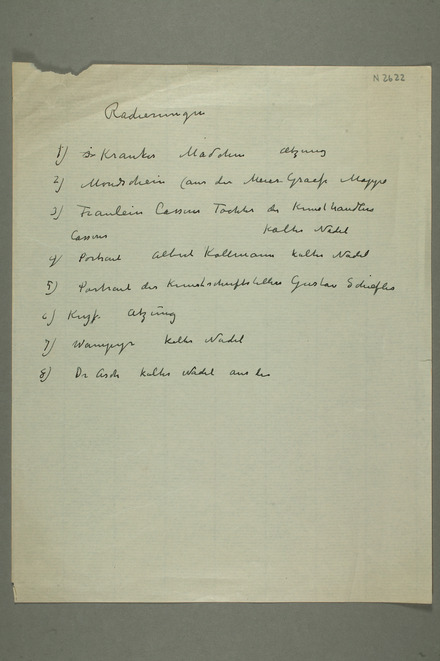 N 2622
Radierungen
1) Krankes Mädchen Ätzung
2) Mondschein (aus der Meier-Graefe Mappe
3) Fraulein Cassirer Tochter des Kunsthandlers
Cassirer Kalte Nadel
4) Portrait Albert Kollmann Kalte Nadel
5) Portrait des Kunstschriftstellers Gustav Schiefler
6) Kuss Atzung
7) Wampyr Kalte Nadel
8) Dr Asch Kalte Nadel aus